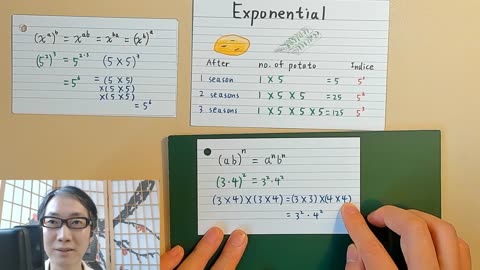 (xᵃ)ᵇ = xᵃᵇ = xᵇᵃ = (xᵇ)ᵃ
(5²)³ = 5²·³ (5 × 5)³
= 5⁶ = (5 × 5)
×(5 × 5)
×(5 × 5)
= 5⁶
Exponential
After no. of potato Indice
1 season 1 × 5 = 5 5¹
2 seasons 1 × 5 × 5 = 25 5²
3 seasons 1 × 5 × 5 × 5 = 125 5³
(ab)ⁿ = aⁿbⁿ
(3·4)² = 3²·4²
(3×4)×(3×4) = (3×3)×(4×4)
= 3²·4²